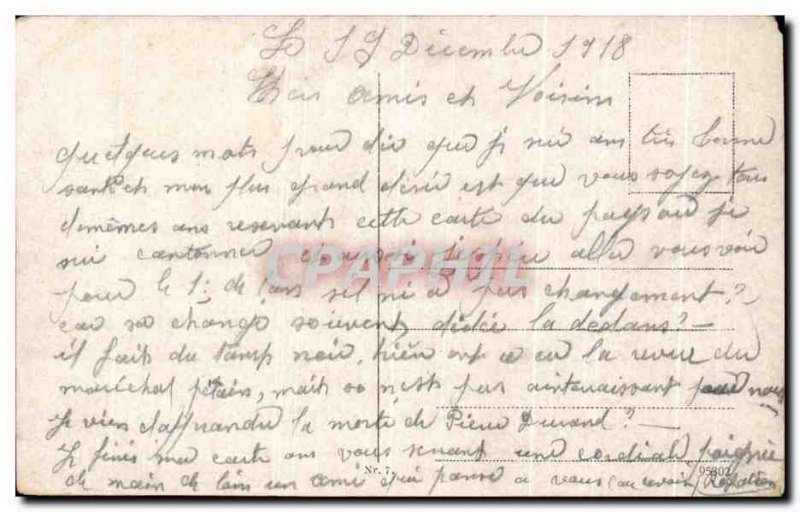 Le 19 Décembre 1918
Chers amis et Voisins
quelques mots pour dir que je sui ans très bonne
santé et mon plus grand désir est que vous soyez tous
demêmes ans resevant cette carte du pays ou je
sui cantonner et aussi je peu allé vous voir
pour le 1: de l'ans sil ni a pas changement?
car sa change souvent d'idée la dedans? -
il fait du temp noir, hier ont a eu la revue du
maréchal pétain, mais sa n'est pas aintéraissant pour nous
Je vien d'apprandre la morte de Pierre Durand? -
Je finis ma carte ans vous serrant une cordial poignée
de main de loin un ami qui panse a vous (au revoir)
Nr. 7. 95302
CPAPHIL